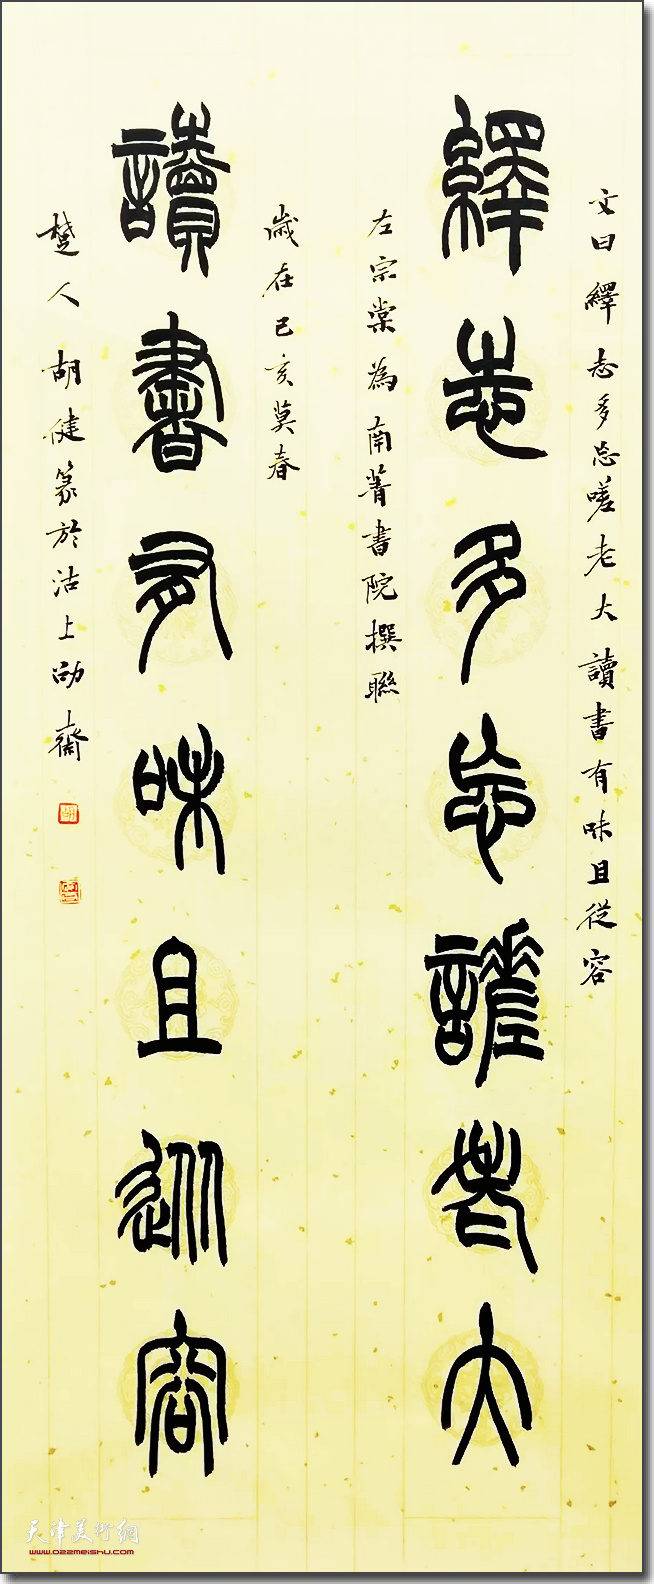 文曰繹志多忘嗟老大讀書有味且從容
繹志多忘嗟老大
左宗棠為南菁書院撰聯
歲在己亥莫春
讀書有味且從容
楚人胡健篆於沽上劭齋
天津美術網
www.022meishu.com